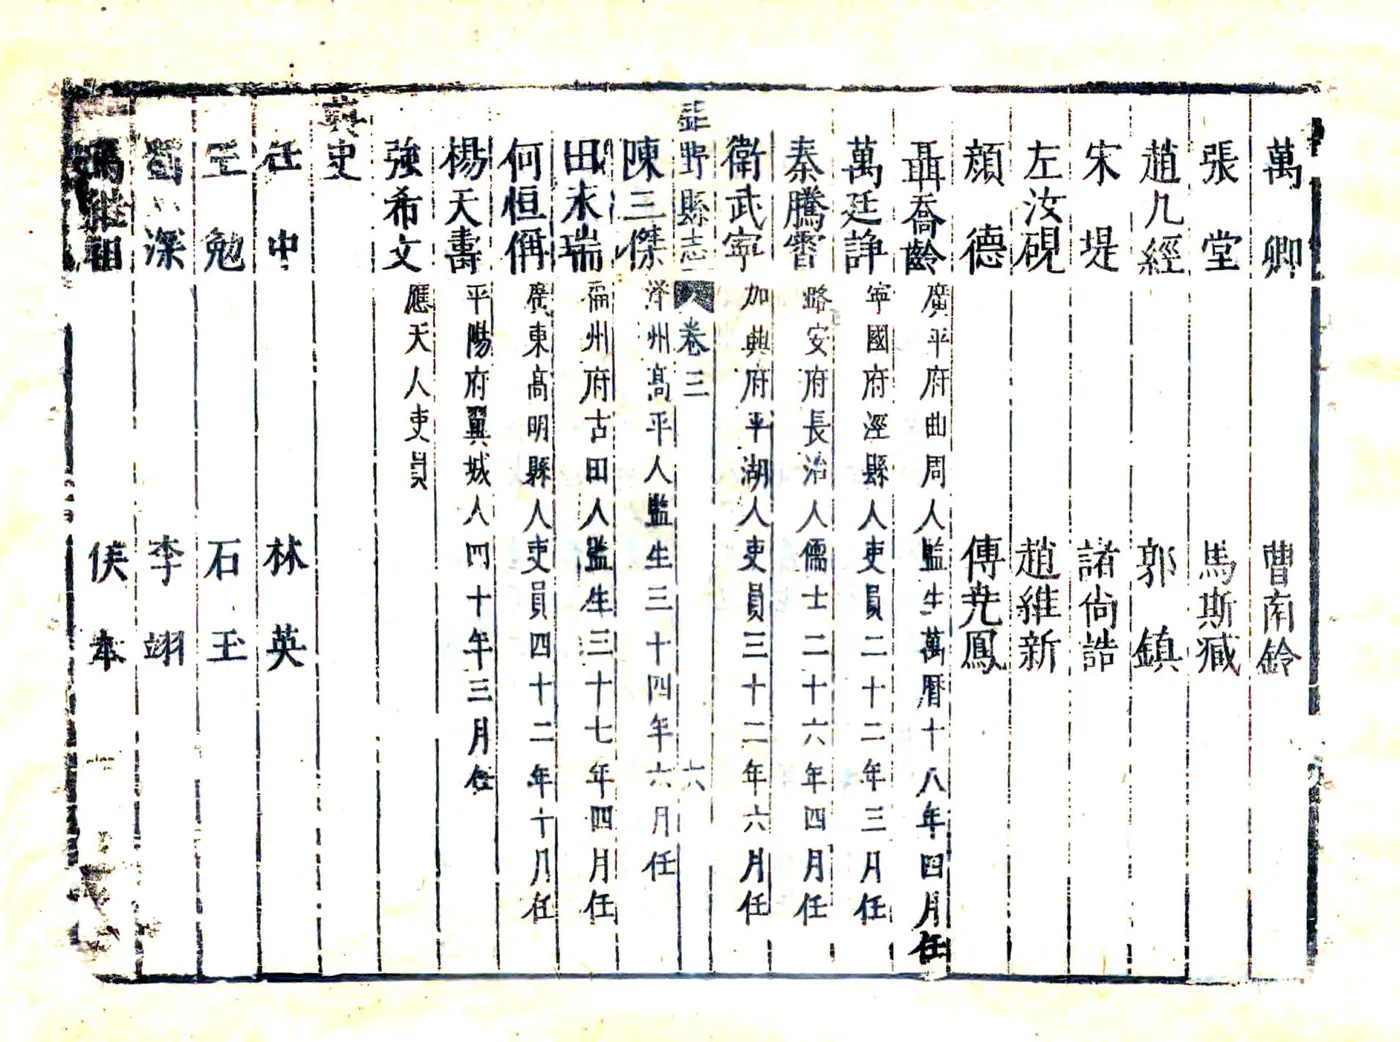 萬卿 曹南鈴
張堂 馬斯臧
趙九經 郭鎮
宋堤 諸尚誥
左汝硯 趙維新
顔德 傅尭鳳
聶喬齡 廣平府曲周人監生萬曆十八年四月任
萬廷諍 寧國府涇縣人吏員二十二年三月任
秦騰霄 潞安府長治人儒士二十六年四月任
衛武寧 加興府平湖人吏員三十二年六月任
鉅野縣志 卷三 六
陳三傑 澤州髙平人監生三十四年六月任
田永瑞 福州府古田人監生三十七年四月任
何恒儞 廣東髙明縣人吏員四十二年十月任
楊天壽 平陽府翼城人四十年三月任
強希文 應天人吏員
典史
任中 林英
王勉 石玉
深 李翊
馮繼祖 侯本